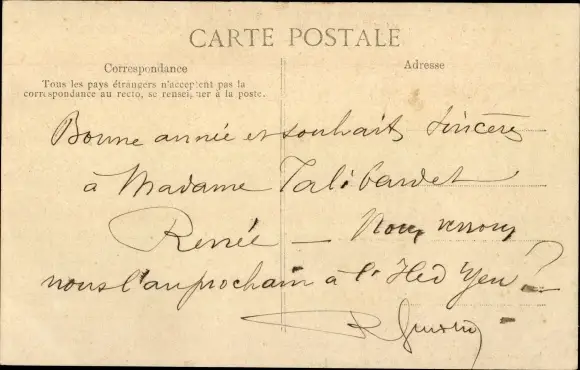 CARTE POSTALE
Correspondance
Adresse
Tous les pays étrangers n'acceptent pas la
correspondance au recto, se renseigner à la poste.
Bonne année et souhaits sincères
à Madame Talibardet
Renée — Nous verrons
nous l'an prochain à l'